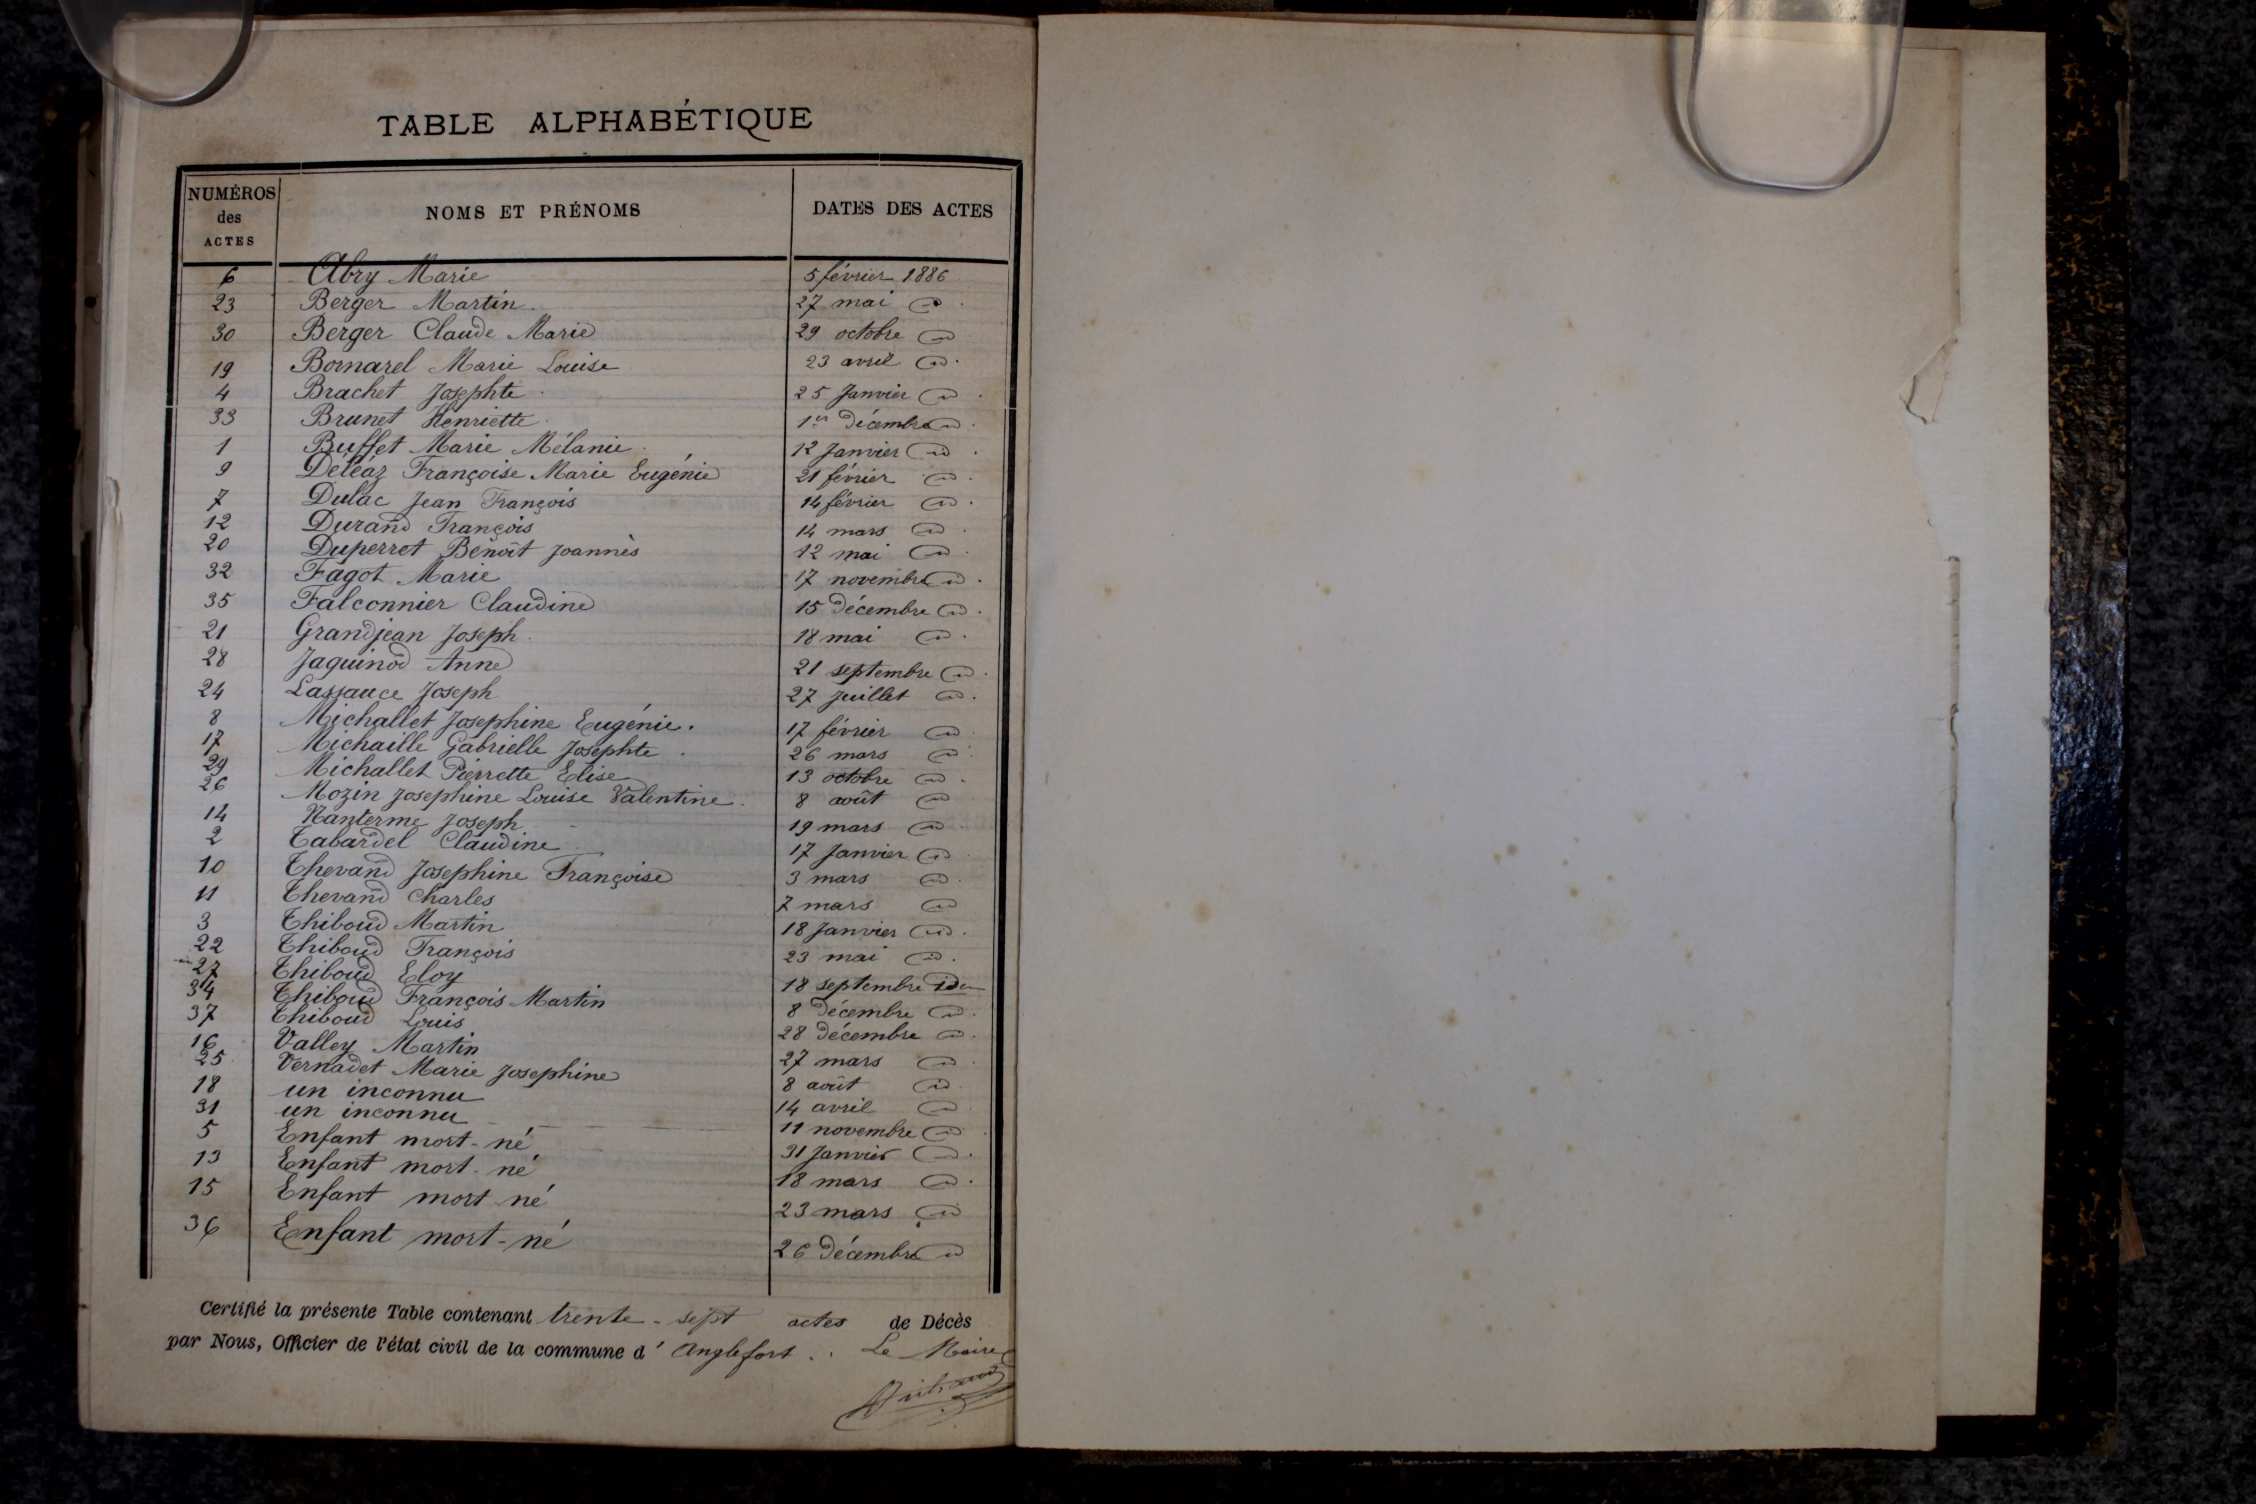 TABLE ALPHABÉTIQUE
NUMÉROS des ACTES NOMS ET PRÉNOMS DATES DES ACTES
6 Abry Marie 5 février 1886
23 Berger Martin 27 mai
30 Berger Claude Marie 29 octobre
19 Bornarel Marie Louise 23 avril
4 Brachet Josephte 25 Janvier
33 Brunet Henriette 1er Décembre
1 Buffet Marie Mélanie 12 Janvier
9 Deléaz Françoise Marie Eugénie 21 février
7 Dulac Jean François 14 février
12 Durand François 14 mars
20 Duperret Benoît Joannès 12 mai
32 Fagot Marie 17 novembre
35 Falconnier Claudine 15 Décembre
21 Grandjean Joseph 18 mai
28 Jaquinod Anne 21 septembre
24 Lassauce Joseph 27 Juillet
8 Michallet Josephine Eugénie. 17 février
17 Michaille Gabrielle Josephte 26 mars
29 Michallet Pierrette Elise 13 octobre
26 Mozin Josephine Louise Valentine 8 août
14 Nanterme Joseph 19 mars
2 Tabardel Claudine 17 Janvier
10 Thevand Josephine Françoise 3 mars
11 Thevand Charles 7 mars
3 Thiboud Martin 18 Janvier
22 Thiboud François 23 mai
27 Thiboud Eloy 18 septembre idem
34 Thiboud François Martin 8 Décembre
37 Thiboud Louis 28 Décembre
16 Valley Martin 27 mars
25 Vernadet Marie Josephine 8 août
18 un inconnu 14 avril
31 un inconnu 11 novembre
5 Enfant mort-né 31 Janvier
13 Enfant mort-né 18 mars
15 Enfant mort né 23 mars
36 Enfant mort-né 26 Décembre
Certifié la présente Table contenant trente-sept actes de Décès
par Nous, Officier de l'état civil de la commune d'Anglefort. Le Maire